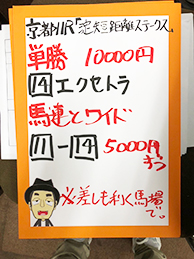 京都11R「淀短距離ステークス」
単勝 10000円
14 エクセトラ
馬連とワイド
11-14 5000円ずつ
※差しも利く馬場で。